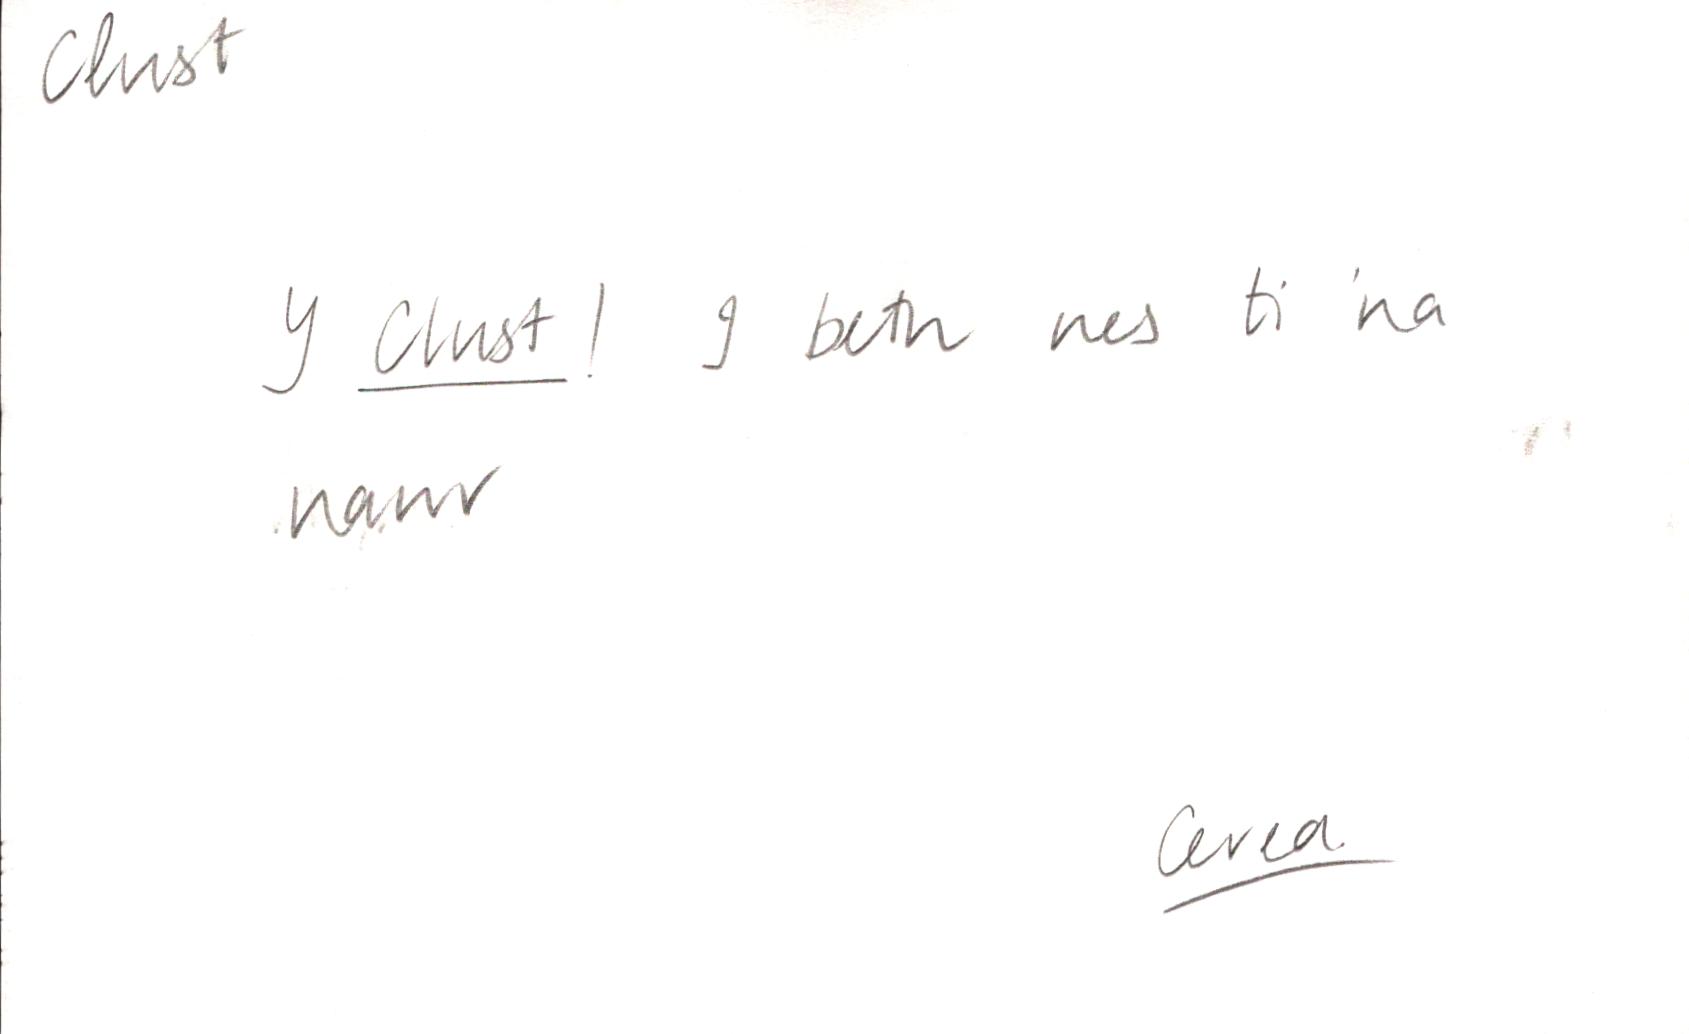 Clust
Y Clust! I beth nes ti 'na
nawr
Cered.